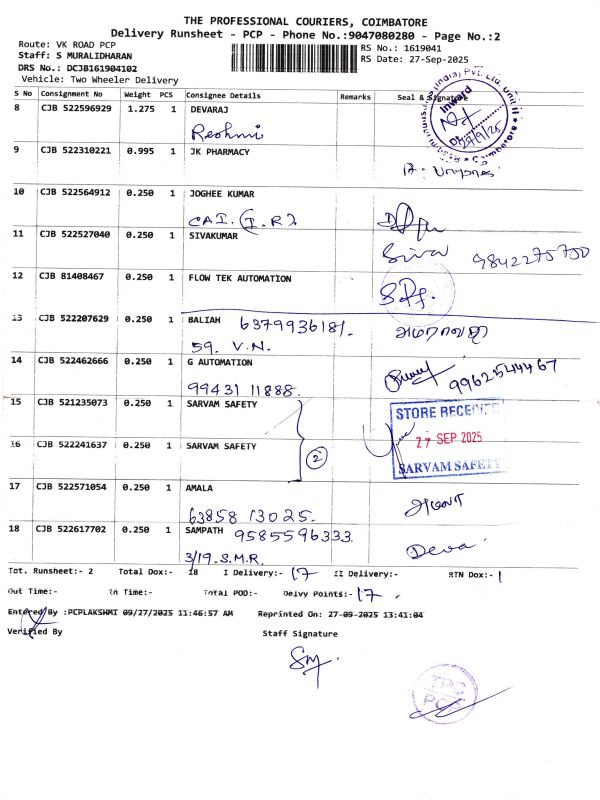 THE PROFESSIONAL COURIERS, COIMBATORE
Delivery Runsheet - PCP - Phone No.:9047080280 - Page No.:2
Route: VK ROAD PCP
RS No.: 1619041
Staff: S MURALIDHARAN
RS Date: 27-Sep-2025
DRS No.: DCJB161904102
Vehicle: Two Wheeler Delivery
S No Consignment No Weight PCS Consignee Details Remarks Seal & Signature
8 CJB 522596929 1.275 1 DEVARAJ
Reshmi
Inward
9 CJB 522310221 0.995 1 JK PHARMACY
10 CJB 522564912 0.250 1 JOGHEE KUMAR
CAI. (I.R)
11 CJB 522527040 0.250 1 SIVAKUMAR
Siva 9842275700
12 CJB 81408467 0.250 1 FLOW TEK AUTOMATION
13 CJB 522207629 0.250 1 BALIAH 6379936181.
59. V.N.
அமராவதி
14 CJB 522462666 0.250 1 G AUTOMATION
99431 11888.
9962544467
15 CJB 521235073 0.250 1 SARVAM SAFETY
STORE RECEIVED
27 SEP 2025
SARVAM SAFETY
16 CJB 522241637 0.250 1 SARVAM SAFETY
2
17 CJB 522571054 0.250 1 AMALA
63858 13025.
அமலா
18 CJB 522617702 0.250 1 SAMPATH 9585596333
3/19. S.M.R.
Deva
Tot. Runsheet:- 2 Total Dox:- 18 I Delivery:- 17 II Delivery:- RTN Dox:- 1
Out Time:- In Time:- Total POD:- Delvy Points:- 17.
Entered By :PCPLAKSHMI 09/27/2025 11:46:57 AM Reprinted On: 27-09-2025 13:41:04
Verified By Staff Signature
TPC
PCP